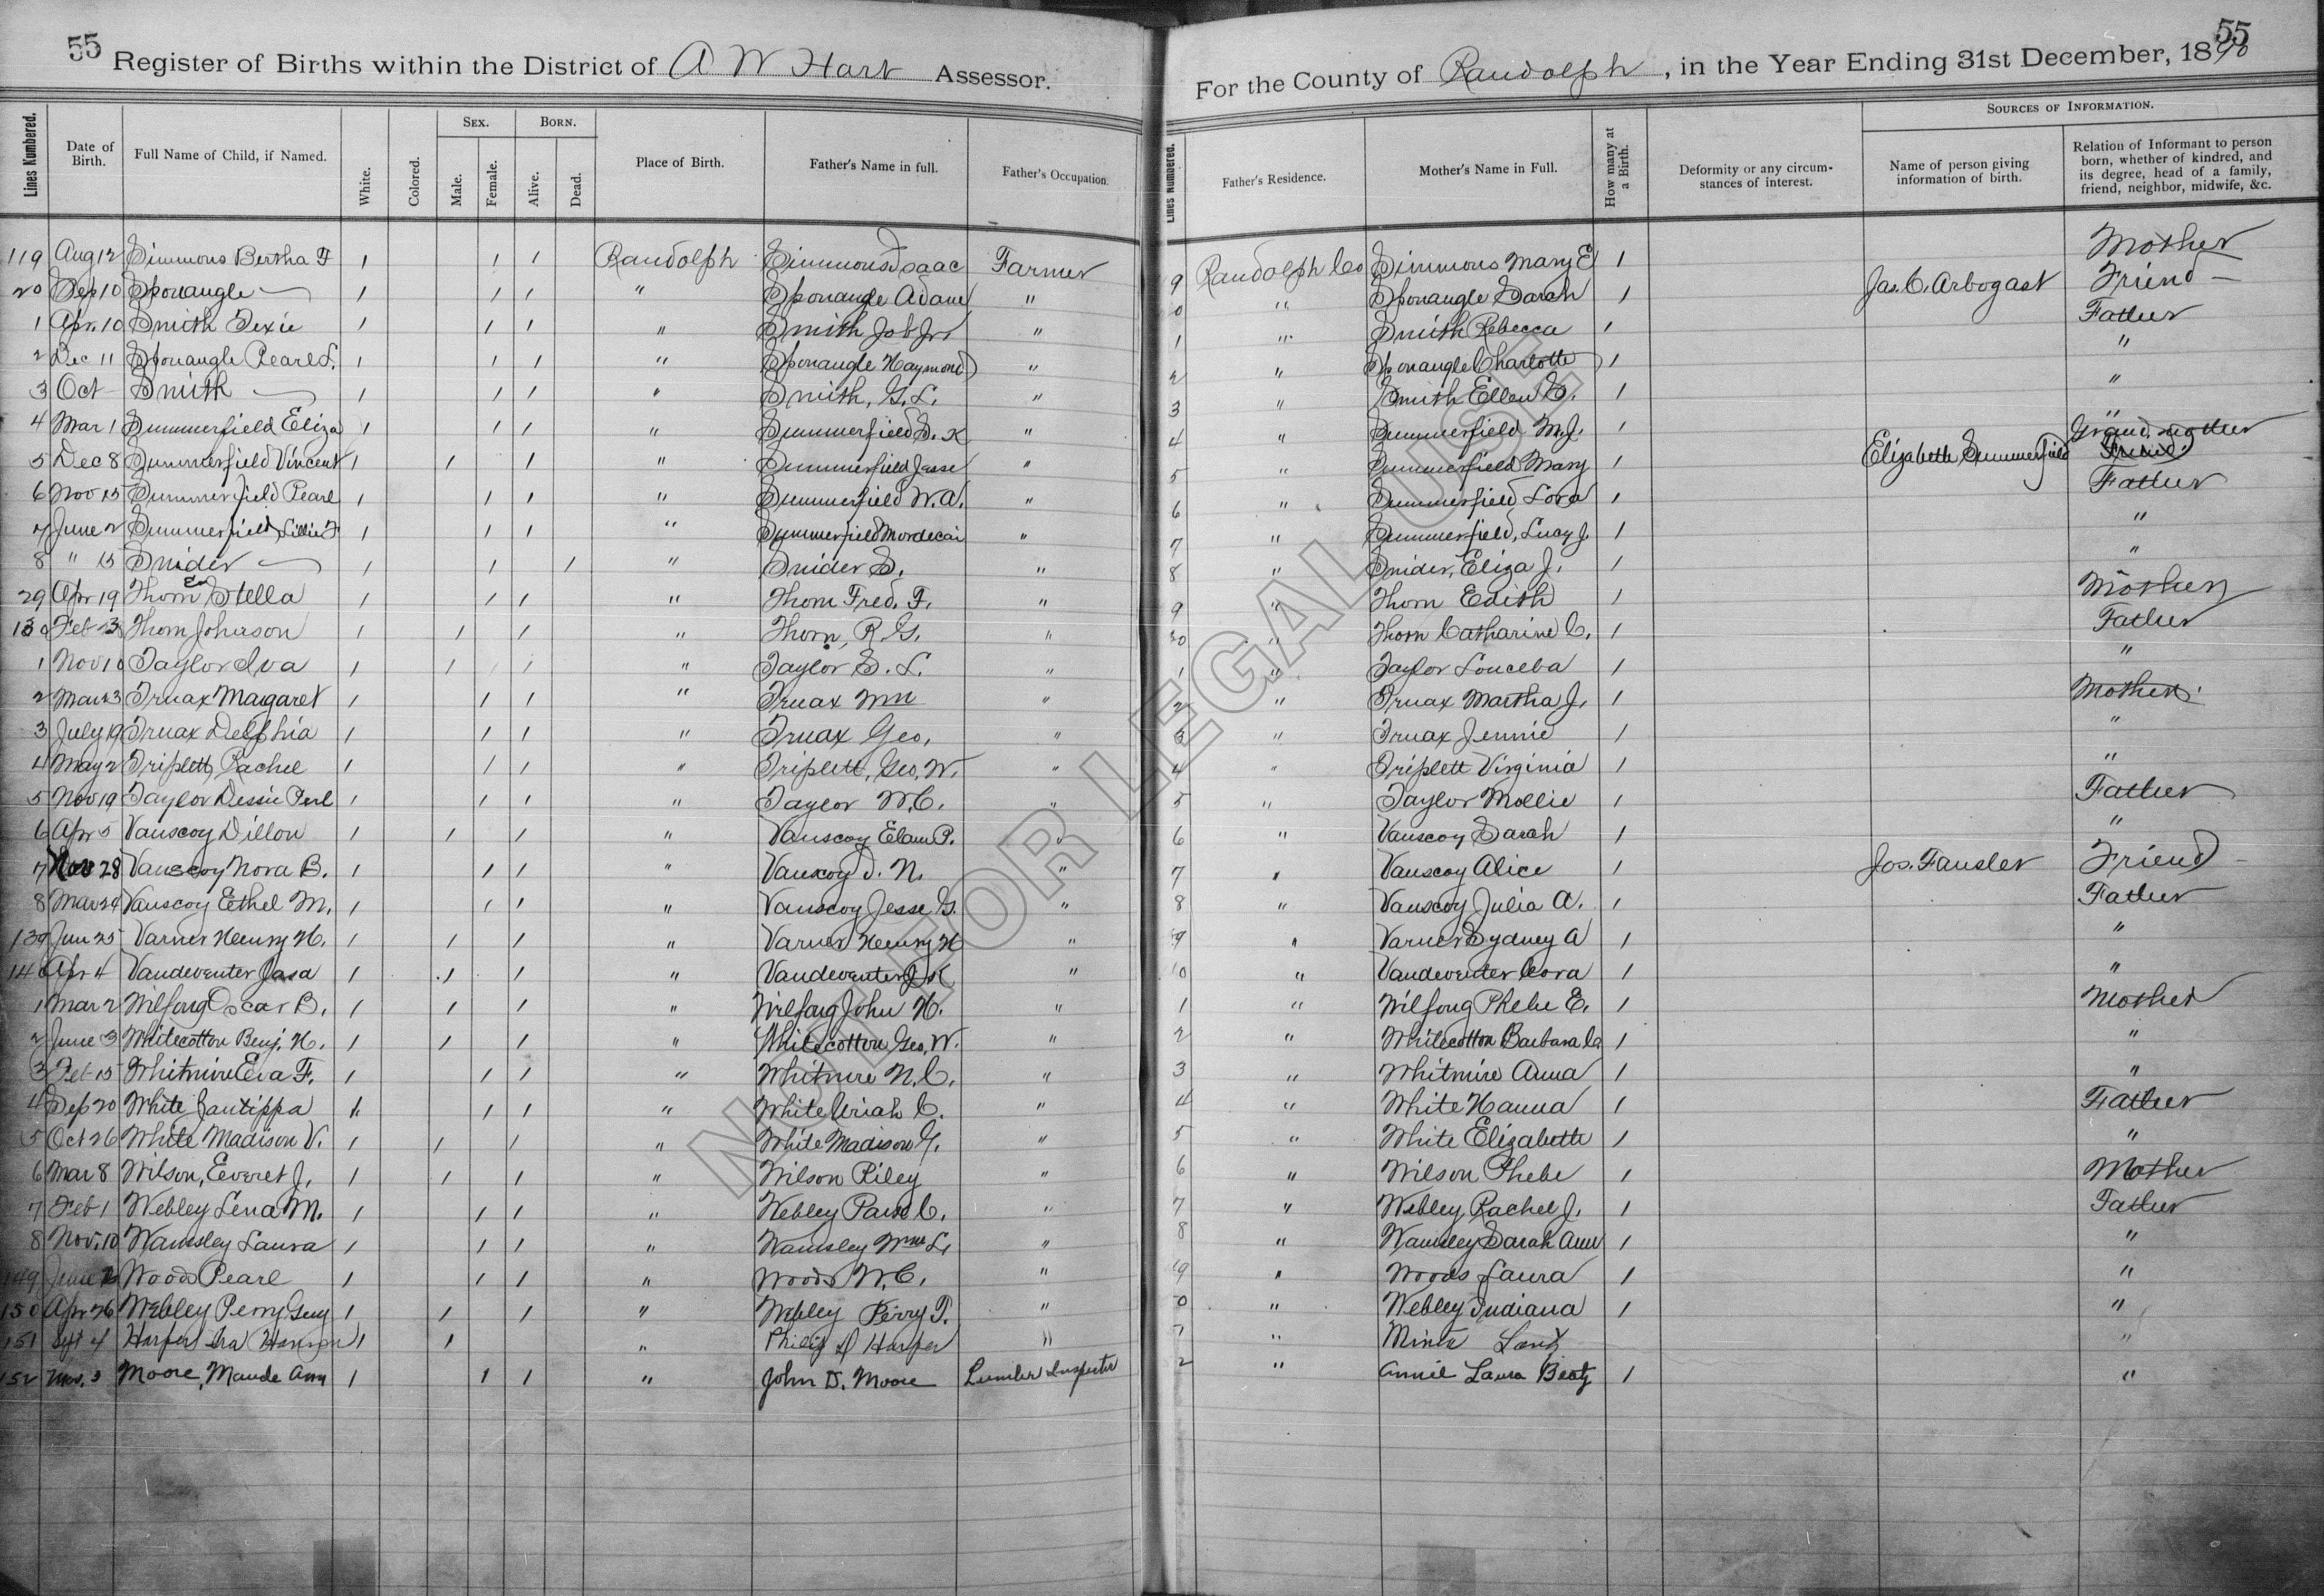 55 Register of Births within the District of A W Hart Assessor.
For the County of Randolph, in the Year Ending 31st December, 1890 55
Lines Numbered. Date of Birth. Full Name of Child, if Named. White. Colored. Sex. Male. Female. Born. Alive. Dead. Place of Birth. Father's Name in full. Father's Occupation.
Lines Numbered. Father's Residence. Mother's Name in Full. How many at a Birth. Deformity or any circumstances of interest. Sources of Information. Name of person giving information of birth. Relation of Informant to person born, whether of kindred, and its degree, head of a family, friend, neighbor, midwife, &c.
119 Aug 12 Simmons Bertha F 1 1 1 Randolph Simmons Isaac Farmer 9 Randolph Co Simmons Mary E 1 Mother
20 Sep 10 Sponaugle — 1 1 1 " Sponaugle Adam " 0 " Sponaugle Sarah 1 Jas. C. Arbogast Friend
1 Apr. 10 Smith Texie 1 1 1 " Smith Job Jr. " 1 " Smith Rebecca 1 Father
2 Dec 11 Sponaugle Pearl L. 1 1 1 " Sponaugle Haymond " 2 " Sponaugle Charlotte 1 "
3 Oct Smith — 1 1 1 " Smith, G. L. " 3 " Smith Ellen 1 "
4 Mar 1 Summerfield Eliza 1 1 1 " Summerfield S. K " 4 " Summerfield M. J. 1 "
5 Dec 8 Summerfield Vincent 1 1 1 " Summerfield Jesse " 5 " Summerfield Mary 1 Elizabeth Summerfield Grand mother Friend
6 Nov 15 Summerfield Pearl 1 1 1 " Summerfield W. A. " 6 " Summerfield Lora 1 Father
7 June 2 Summerfield Lillie F 1 1 1 " Summerfield Mordecai " 7 " Summerfield, Lucy J. 1 "
8 " 15 Snider — 1 1 1 " Snider S. " 8 " Snider, Eliza J. 1 "
29 Apr 19 Thorn Stella 1 1 1 " Thorn Fred. F. " 9 " Thorn Edith 1 Mother
130 Feb 3 Thorn Johnson 1 1 1 " Thorn, R. G. " 30 " Thorn Catharine C. 1 Father
1 Nov 10 Taylor Iva 1 1 1 " Taylor S. L. " 1 " Taylor Louceba 1 "
2 Mar 23 Truax Margaret 1 1 1 " Truax Wm " 2 " Truax Martha J. 1 Mother
3 July 19 Truax Delphia 1 1 1 " Truax Geo. " 3 " Truax Jennie 1 "
4 May 2 Triplett, Rachel 1 1 1 " Triplett, Geo. W. " 4 " Triplett Virginia 1 "
5 Nov 19 Taylor Dessie Perl 1 1 1 " Taylor W. C. " 5 " Taylor Mollie 1 Father
6 Apr 5 Vanscoy Dillon 1 1 1 " Vanscoy Elam P. " 6 " Vanscoy Sarah 1 "
7 Nov 28 Vanscoy Nora B. 1 1 1 " Vanscoy D. N. " 7 " Vanscoy Alice 1 Jos. Fansler Friend
8 Mar 24 Vanscoy Eethel M. 1 1 1 " Vanscoy Jesse G. " 8 " Vanscoy Julia A. 1 Father
139 Jun 25 Varner Henry H. 1 1 1 " Varner Henry H " 9 " Varner Sydney A 1 "
140 Apr 4 Vandeventer Jasa 1 1 1 " Vandeventer J. K " 10 " Vandeventer Cora 1 "
1 Mar 2 Wilfong Oscar B. 1 1 1 " Wilfong John H. " 1 " Wilfong Phebe E. 1 Mother
2 June 3 Whitecotton Benj. H. 1 1 1 " Whitecotton Geo. W. " 2 " Whitecotton Barbara 1 "
3 Feb 15 Whitmire Eva F. 1 1 1 " Whitmire N. C. " 3 " Whitmire Anna 1 "
4 Sep 20 White Zantippa 1 1 1 " White Uriah C. " 4 " White Hanna 1 Father
5 Oct 26 White Madison V. 1 1 1 " White Madison G. " 5 " White Elizabeth 1 "
6 Mar 8 Wilson, Everet J. 1 1 1 " Wilson Riley " 6 " Wilson Phebe 1 Mother
7 Feb 1 Webley Lena M. 1 1 1 " Webley C. " 7 " Webley, Rachel J. 1 Father
8 Nov. 10 Wamsley Laura 1 1 1 " Wamsley Wm L. " 8 " Wamsley Sarah Ann 1 "
149 June Woods Pearl 1 1 1 " Woods W. C. " 49 " Woods Laura 1 "
150 Apr 26 Webley Perry Guy 1 1 1 " Webley Perry T. " 0 " Webley Indiana 1 "
151 Sept 4 Harper Ira Hanson 1 1 " Philip D Harper " 1 " Minta Lantz "
152 Nov. 3 Moore, Maude Ann 1 1 1 " John D. Moore Lumber Inspector 2 " Annie Laura Beaty 1 "
NOT FOR LEGAL USE